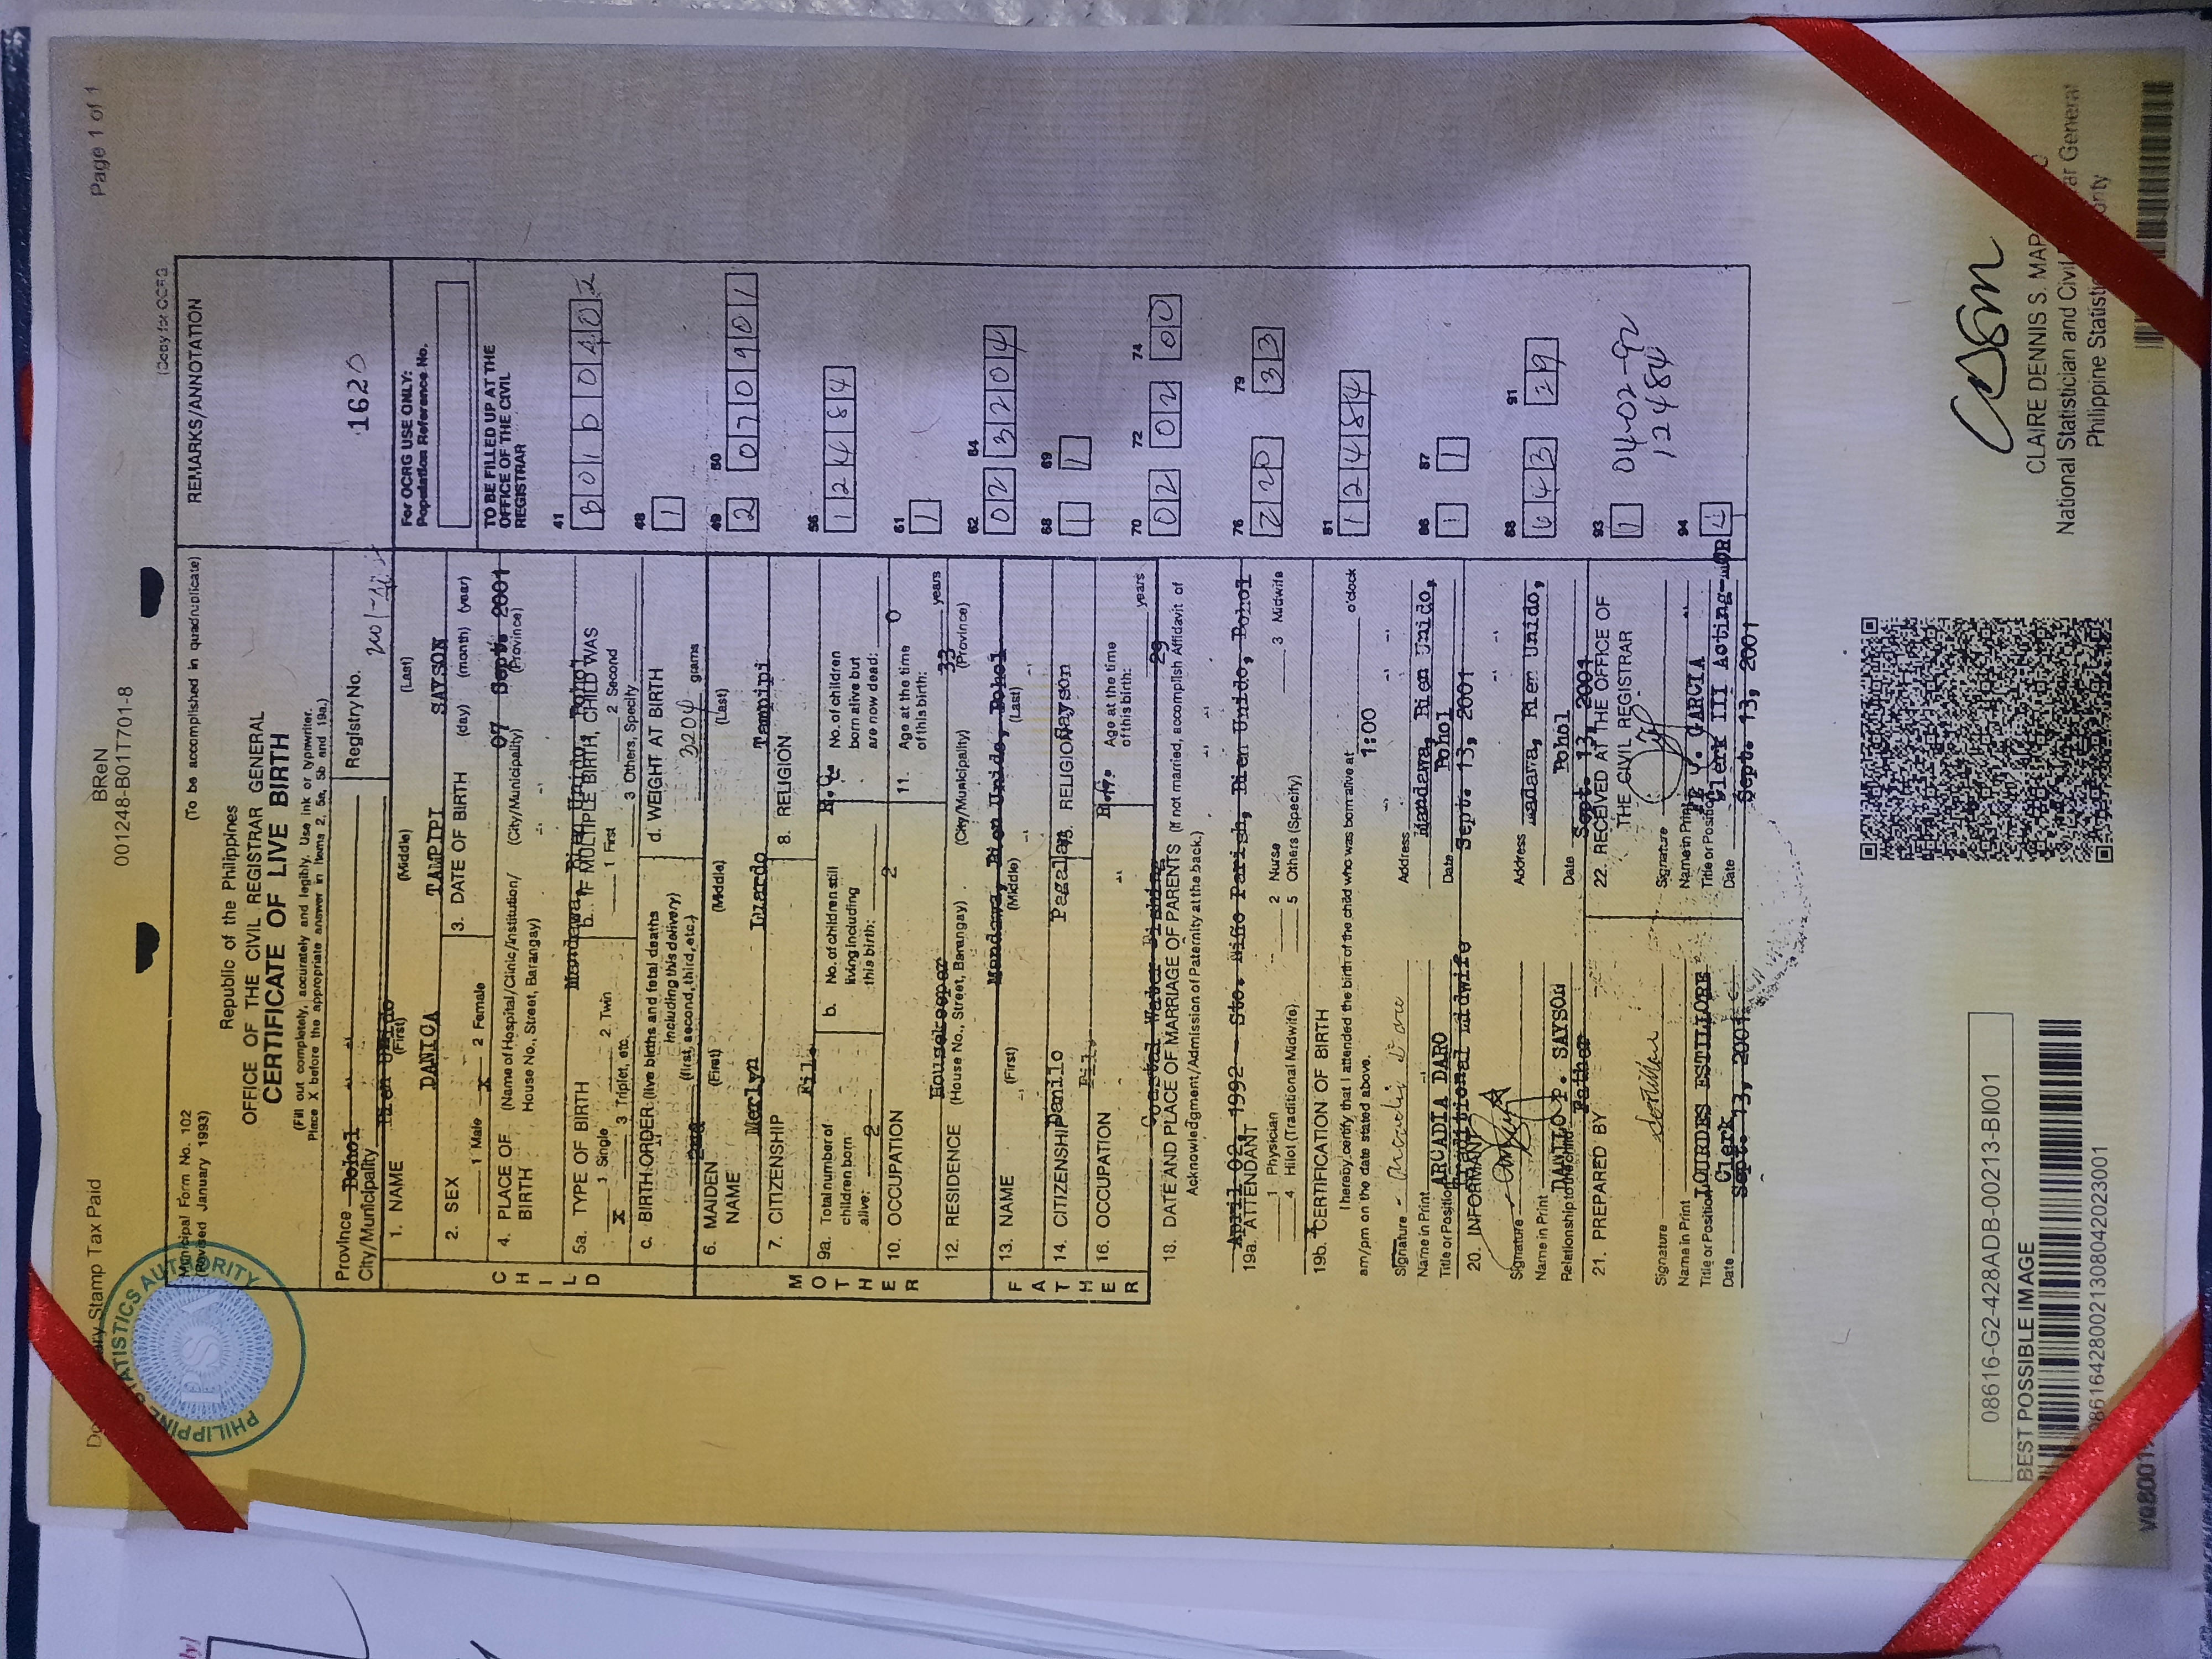 Page 1 of 1
ry Stamp Tax Paid
BReN
001248-B01T701-8
(Copy for OCRG
PHILIPPINE STATISTICS AUTHORITY
PSA
Municipal Form No. 102
(Revised January 1993)
(To be accomplished in quadruplicate)
Republic of the Philippines
OFFICE OF THE CIVIL REGISTRAR GENERAL
CERTIFICATE OF LIVE BIRTH
(Fill out completely, accurately and legibly. Use ink or typewriter.
Place X before the appropriate answer in Items 2, 5a, 5b and 19a.)
REMARKS/ANNOTATION
Province Bohol
City/Municipality Bien Unido
Registry No.
1620
1. NAME (First) (Middle) (Last)
DANICA TAMPIPI SAYSON
For OCRG USE ONLY:
Population Reference No.
2. SEX
1 Male X 2 Female
3. DATE OF BIRTH (day) (month) (year)
07 Sept. 2001
TO BE FILLED UP AT THE
OFFICE OF THE CIVIL
REGISTRAR
4. PLACE OF BIRTH (Name of Hospital/Clinic/Institution/ House No., Street, Barangay) (City/Municipality) (Province)
Mandawa, Bien Unido, Bohol
CHILD
5a. TYPE OF BIRTH
X 1 Single 2 Twin
3 Triplet, etc.
b. IF MULTIPLE BIRTH, CHILD WAS
1 First 2 Second
3 Others, Specify
c. BIRTH ORDER (live births and fetal deaths
including this delivery)
(first, second, third, etc.)
2nd
d. WEIGHT AT BIRTH
3204 grams
MOTHER
6. MAIDEN NAME (First) (Middle) (Last)
Merlyn Luardo Tampipi
7. CITIZENSHIP
Fil.
8. RELIGION
R.C.
9a. Total number of
children born
alive: 2
b. No. of children still
living including
this birth: 2
No. of children
born alive but
are now dead: 0
10. OCCUPATION
Housekeeper
11. Age at the time
of this birth: 33 years
12. RESIDENCE (House No., Street, Barangay) (City/Municipality) (Province)
Mandawa, Bien Unido, Bohol
FATHER
13. NAME (First) (Middle) (Last)
Danilo Pagalan Sayson
14. CITIZENSHIP
Fil.
15. RELIGION
R.C.
16. OCCUPATION
Coastal Water Fishing
Age at the time
of this birth: 29 years
18. DATE AND PLACE OF MARRIAGE OF PARENTS (If not married, accomplish Affidavit of
Acknowledgment/Admission of Paternity at the back.)
April 02, 1992 - Sto. Niño Parish, Bien Unido, Bohol
19a. ATTENDANT
1 Physician 2 Nurse 3 Midwife
4 Hilot (Traditional Midwife) 5 Others (Specify)
19b. CERTIFICATION OF BIRTH
I hereby certify that I attended the birth of the child who was born alive at 1:00 o'clock
am/pm on the date stated above.
Signature
Name in Print ARCADIA DARO
Title or Position Traditional Midwife
Address Mandawa, Bien Unido,
Bohol
Date Sept. 13, 2001
20. INFORMANT
Signature
Name in Print DANILO P. SAYSON
Relationship to the child Father
Address Mandawa, Bien Unido,
Bohol
Date Sept. 13, 2001
21. PREPARED BY
Signature
Name in Print LOURDES ESTILLORE
Title or Position Clerk
Date Sept. 13, 2001
22. RECEIVED AT THE OFFICE OF
THE CIVIL REGISTRAR
Signature
Name in Print Y. GARCIA
Title or Position Clerk III Acting-
Date Sept. 13, 2001
41
48
1
49
2
50
070901
56
12484
61
1
62
02
64
3204
68
1
69
1
70
02
72
02
74
00
76
220
79
33
81
12484
86
1
87
1
88
643
91
29
93
1
94
04-02-92
12484
08616-G2-428ADB-00213-BI001
BEST POSSIBLE IMAGE
CLAIRE DENNIS S. MAP
National Statistician and Civil ar General
Philippine Statisti ority